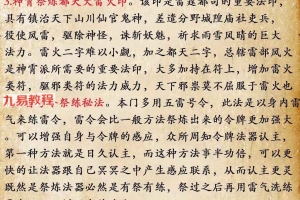 3.神霄祭炼都天大雷火印。该印是雷霆都司的重要法印，
具有镇治天下山川仙官鬼神，差遣分野城隍庙社吏兵，
役使风雷，驱除神怪，诛斩妖魅，祈求雨雪风晴的巨大
法力。大雷火二字难以小觑，加之都天二字，总辖雷部风火
是神霄派所需要的重要法印，大多加持在符上，增加雷霆
类符，驱邪类符的法力威力，天下邪祟莫不屈服于电雷火
九易教程-祭炼秘法。本门多用五雷号令，此法是以身内雷
气来炼雷令，雷令会比一般方法祭炼出来的令牌更加强大
。可以增强自身与令牌的感应，众所周知令牌法器认主，
第一种方法就是日久认主，而这种方法事半功倍，可以更
快的让法器跟自己冥冥之中产生感应联系，从而认主更灵
既然是祭炼法器必然是有祭有炼，祭过之后再用雷气洗练